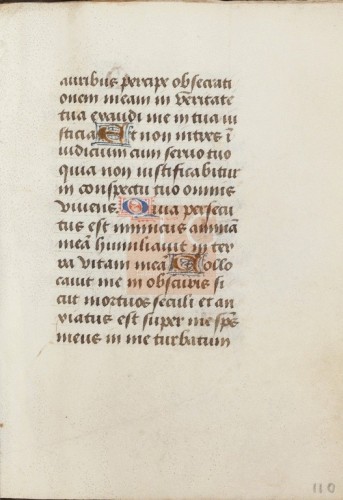 auribus percipe obsecrati
onem meam in v̄eritate
tua exaudi me in tua iu
sticia Et non intres ī
iudicium cum servo tuo
quia non iustificabitur
in conspectu tuo omnis
vivens Quia persecu
tus est inimicus animā
meā humiliavit in ter
ra vitam meā Collo
cavit me in obscuris si
cut mortuos seculi et an
xiatus est super me sp̄s
meus in me turbatum
110